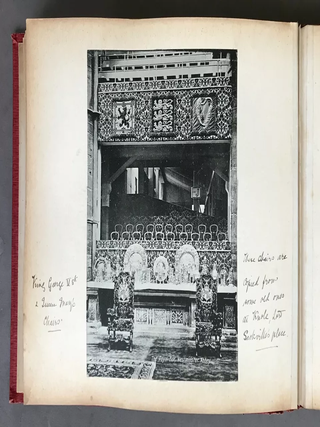 King George Vth
& Queen Mary's
Chairs.
These chairs are
copied from
some old ones
at Knole Lord
Sackville's place.